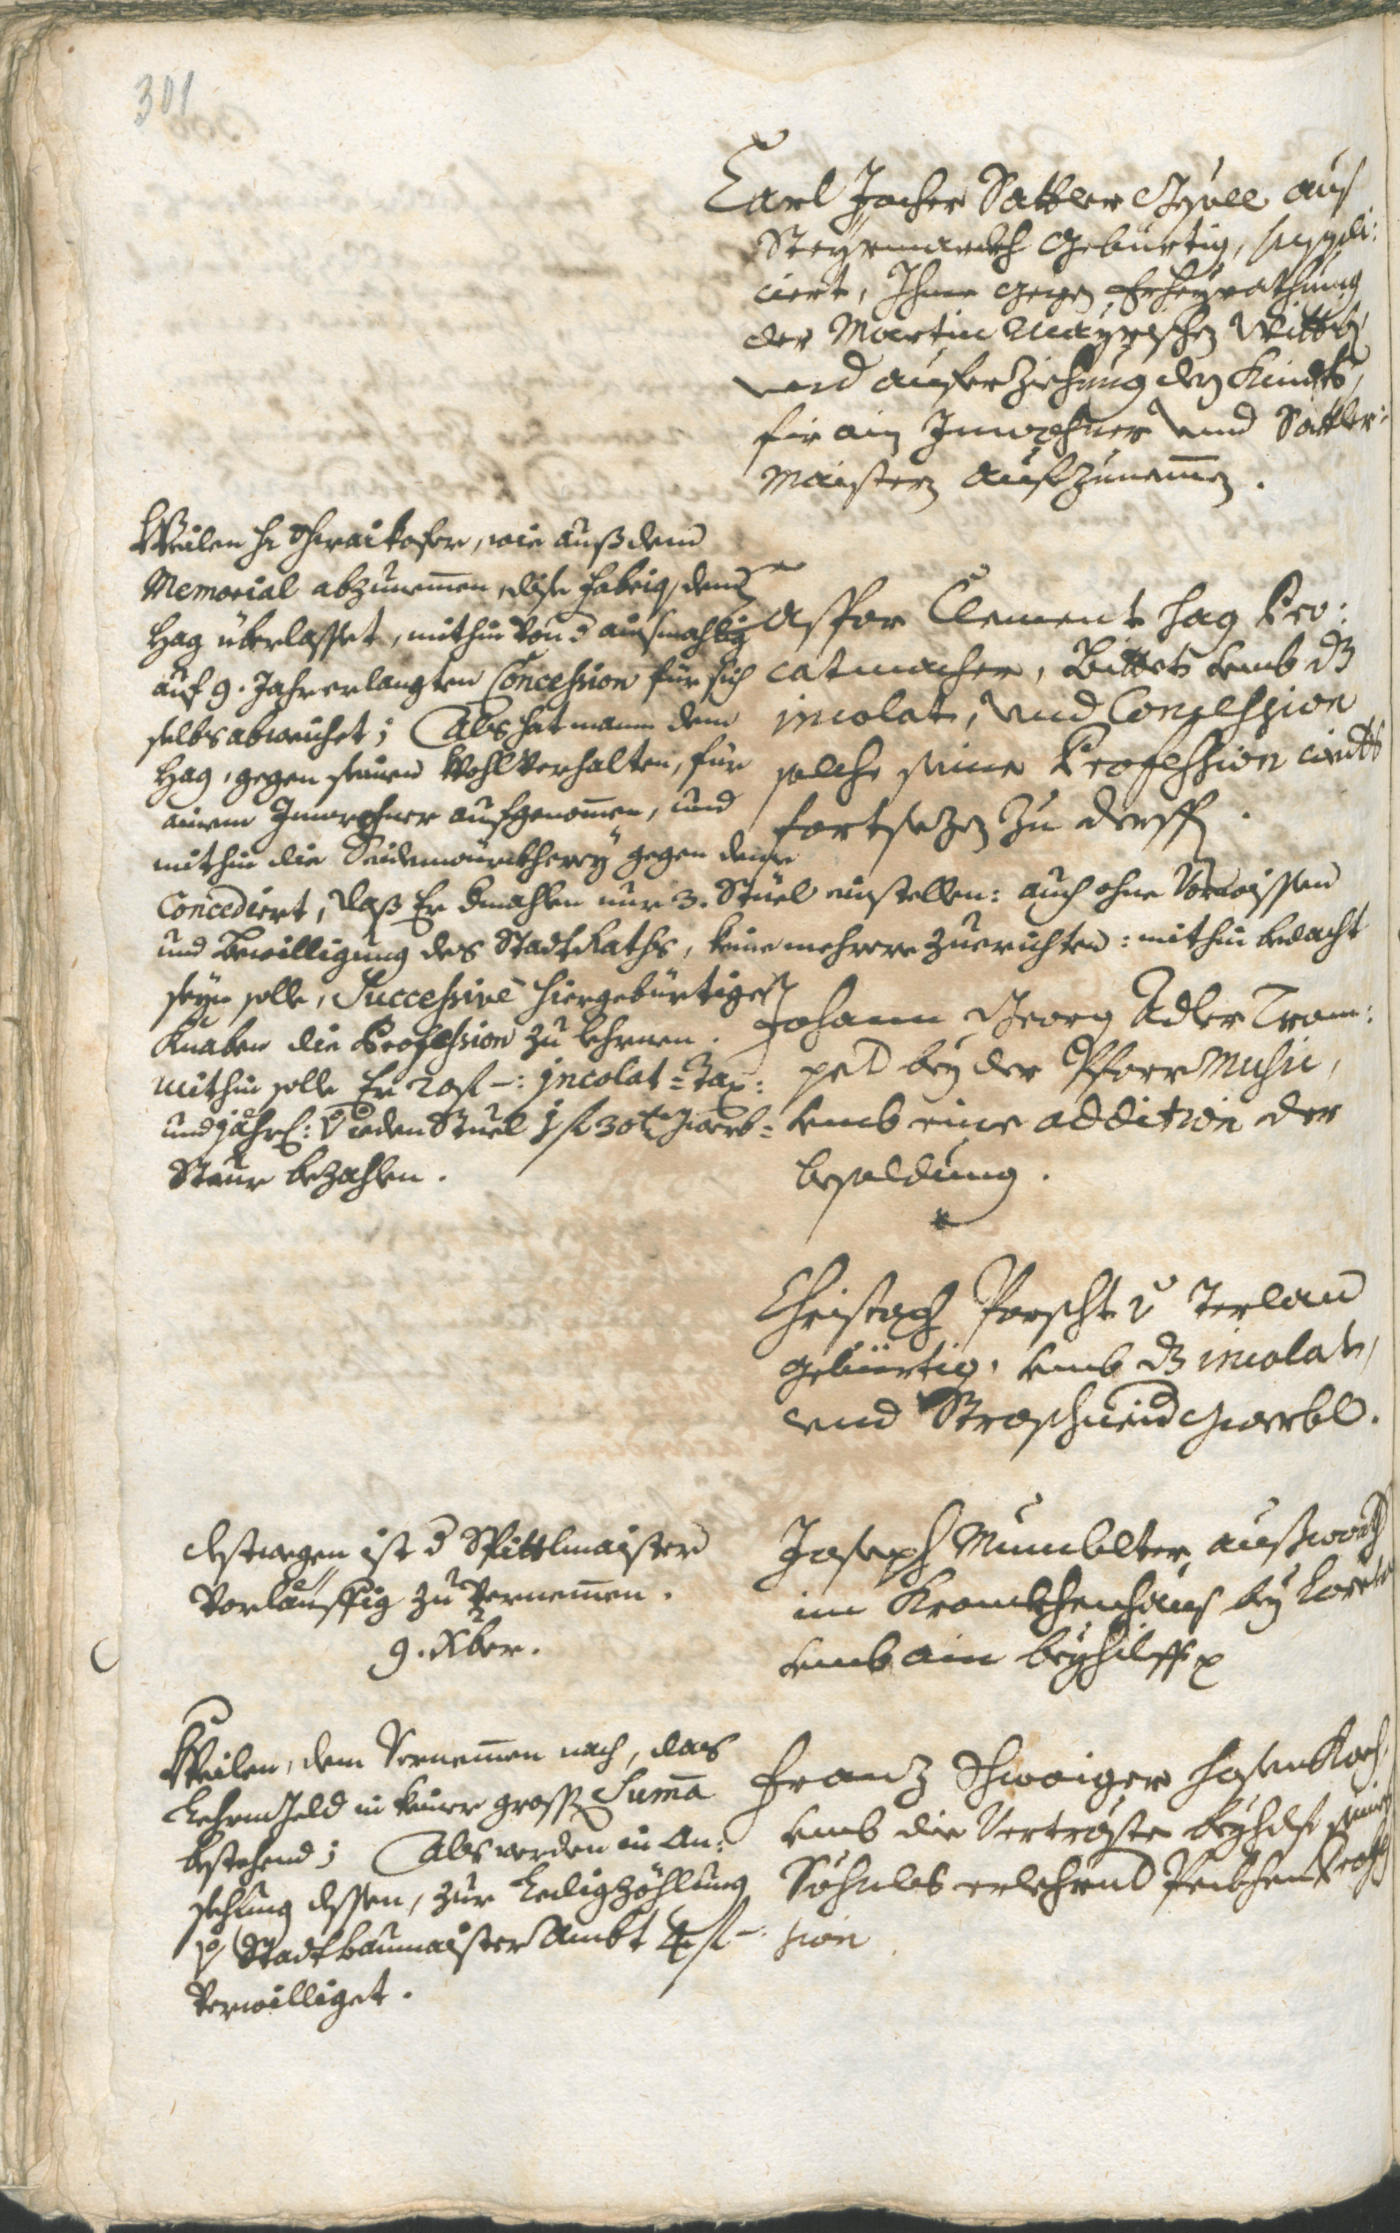 301
Carl Jocher Sattler Gsöll aus
Steyrmarckh gebürtig, suppli:
ciert, Ihme gegen Erheyrathung
der Martin Mayrischen Wittib
und auferziehung der Kindts,
für ain Inwohner und Sattler:
Maistern aufzunemen.
Weilen H: Schwaikofer, wie auß dem
Memorial abzunemen, dise fabrig, dem
Hag überlasset, mithin von d ainsmahlig
auf 9. Jahr erlangten Concession für sich
selbs abweichet; Als hat mann dem
Hag, gegen seinen Wohlverhalten, für
ainem Inwohner aufgenomen, und
mithin die Seidenwürckherey gegen deme
Concediert, daß Er dmahlen nur 3. Stüel einstellen: auch ohne Vorwissen
und Bewilligung des StadtRaths, keine mehrere zuerichten: mithin bedacht
seyn solle, Successivè hiergebürtige
Knaben die Profession zu lehrnen.
mithin solle Er 20 fl –: incolat-Tax:
und jährl: v ieden Stuel 1 fl 30 x Gwerb-
Steur bezahlen.
Casspar Clement Hag Bro:
catmacher, Bittet umb dz
incolat, und Concession
solche seine Profession
fortsezen zu derffen.
Johann Georg Adler Trom:
pet bey der Pfarr Music,
umb eine addition der
besoldung.
Christoph Porscht v Terlan
gebürtig, umb dz incolat,
und Stroschneid Gwerbl.
destwegen ist d Spittlmaister
vorläuffig zu vernemen.
9. Xber.
Joseph Mumelter außwarth
im Kranckhenhaus bey Loreto
umb ain beyhilff
Weilen, dem Vernemen nach, das
Lehrn Geld in keiner grossen Suma
bestehend; Als werden in An:
sehung dessen, zur Ledigzöhlung
p Stadtbaumaister Ambt 4 fl –:
verwilliget.
Franz Schwaiger Hafenkoch
umb die Vertröste beyhilf seines
Söhnls erlehrnd Profes
sion